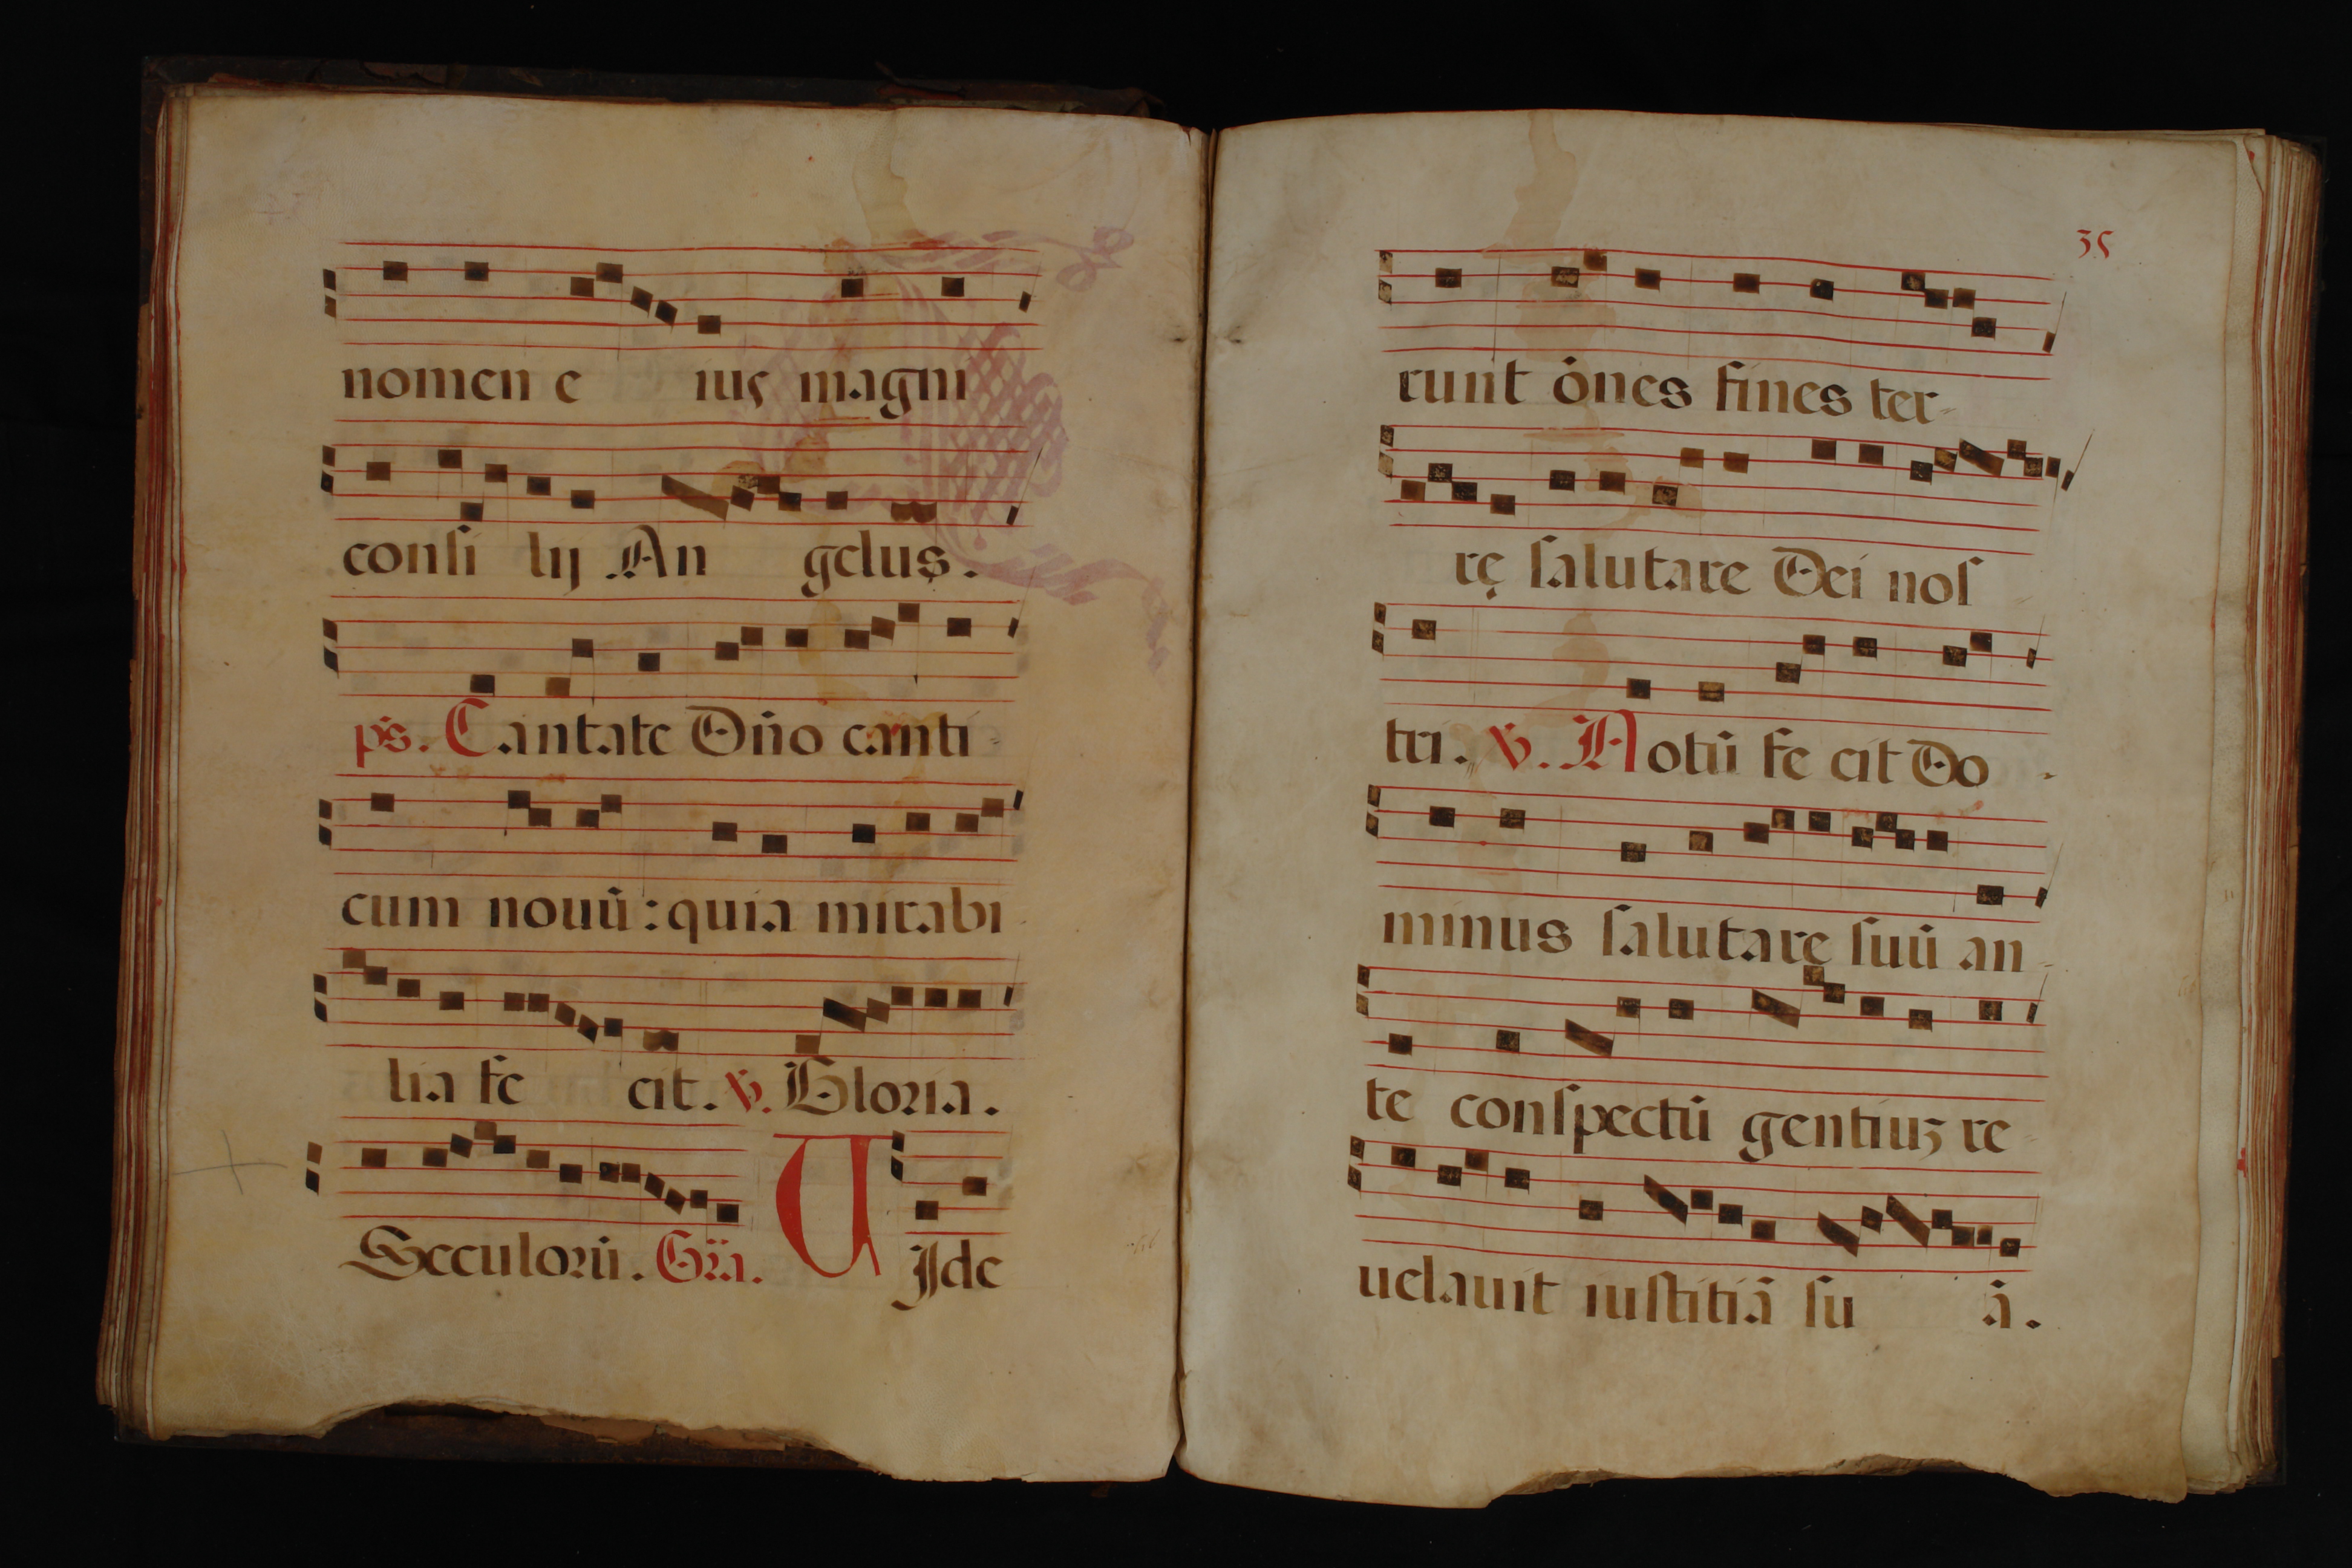 nomen e ius magni
consi lij An gelus.
ps. Cantate Dño canti
cum nouū: quia mirabi
lia fe cit. ℣. Gloria.
Seculorū. Gra. UIde
35
runt ōnes fines ter-
rę salutare Dei nos
tri. ℣. Notū fe cit Do-
minus salutare suū an-
te conspectū gentiuȝ re-
uelauit iustitiā su ā.